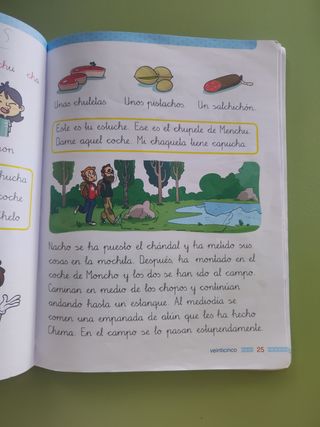 chu cha
Unas chuletas. Unos pistachos. Un salchichón.
Este es tu estuche. Ese es el chupete de Menchu.
Dame aquel coche. Mi chaqueta tiene capucha.
chucha
coche
chelo
Nacho se ha puesto el chándal y ha metido sus
cosas en la mochila. Después ha montado en el
coche de Moncho y los dos se han ido al campo.
Caminan en medio de los chopos y continúan
andando hasta un estanque. Al mediodía se
comen una empanada de atún que les ha hecho
Chema. En el campo se lo pasan estupendamente.
veinticinco 25